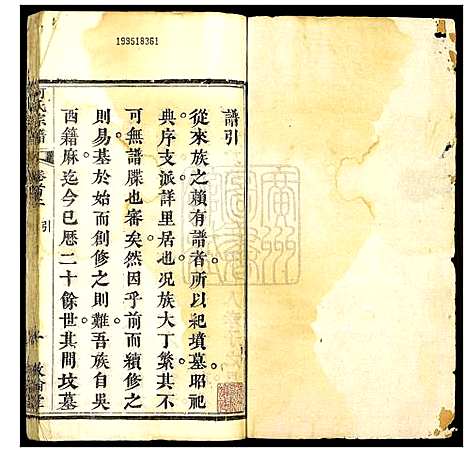 193518361
譜引
從來族之賴有譜者所以紀墳墓昭祀
典序支派詳里居也況族大丁繁其不
可無譜牒也審矣然因乎前而續修之
則易基於始而創修之則難吾族自吳
西籍麻迄今已歷二十餘世其間墳墓
氏宗譜
引
敦倫堂